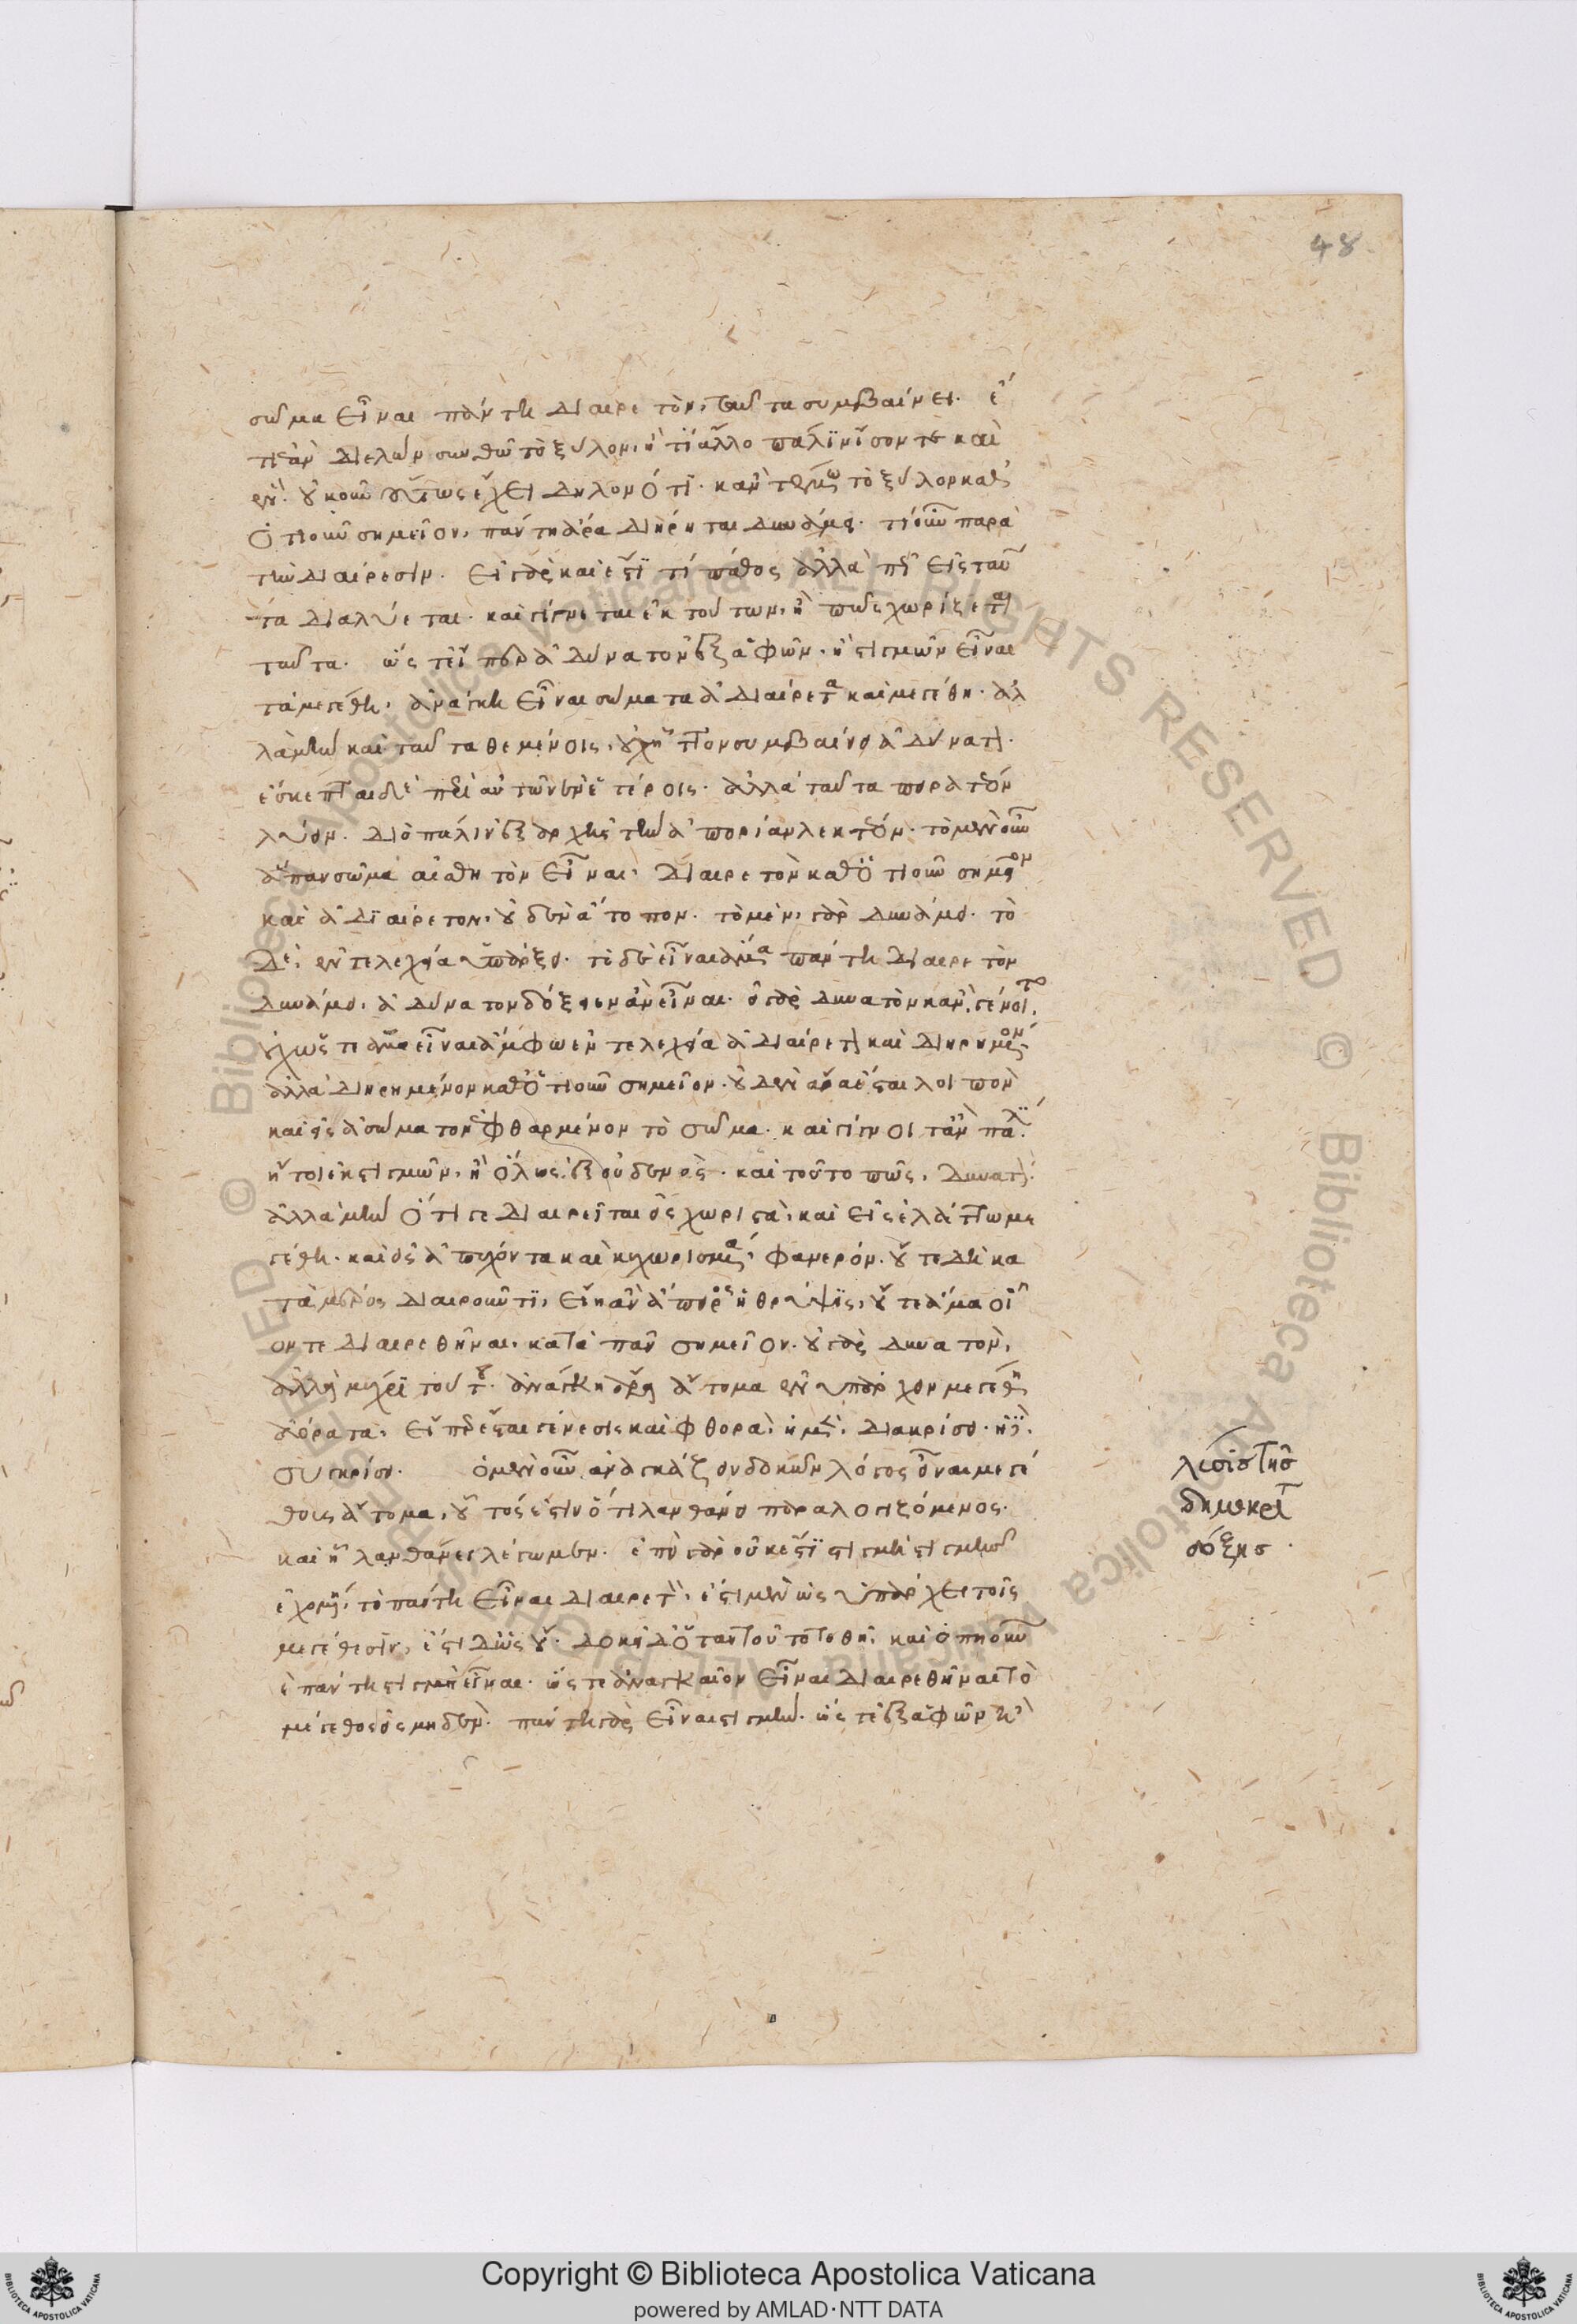 48
σῶμα εἶναι πάντη διαιρετὸν, ταῦτα συμβαίνει. ἔ
τι ἐὰν διελὼν συνθῶ τὸ ξύλον, ἤ τι ἄλλο πάλιν ἴσον τε καὶ
ἕν. οὐκοῦν οὕτως ἔχει δηλονότι. κἂν τέμνω τὸ ξύλον καθ'
ὁτιοῦν σημεῖον, πάντη ἄρα διήρηται δυνάμει. τί οὖν παρὰ
τὴν διαίρεσιν. εἰ γὰρ καὶ ἔστι τί πάθος ἀλλὰ πῶς εἰς ταῦ
τα διαλύεται. καὶ γίγνεται ἐκ τούτων, ἢ πῶς χωρίζεται
ταῦτα. ὥστ' εἴπερ ἀδύνατον ἐξ ἁφῶν. ἢ στιγμῶν εἶναι
τὰ μεγέθη, ἀνάγκη εἶναι σώματα ἀδιαίρετα καὶ μεγέθη. ἀλ
λὰ μὴν καὶ ταῦτα θεμένοις, οὐχ ἧττον συμβαίνει ἀδύνατον.
ἔσκεπται δὲ περὶ αὐτῶν ἐν ἑτέροις. ἀλλὰ ταῦτα πειρατέον
λύειν. διὸ πάλιν ἐξ ἀρχῆς τὴν ἀπορίαν λεκτέον. τὸ μὲν οὖν
ἅπαν σῶμα αἰσθητὸν εἶναι, διαιρετὸν καθ' ὁτιοῦν σημεῖον
καὶ ἀδιαίρετον, οὐδὲν ἄτοπον. τὸ μὲν, γὰρ δυνάμει. τὸ
δὲ, ἐντελεχείᾳ ὑπάρξει. τὸ δ' εἶναι ἅμα πάντη διαιρετὸν
δυνάμει, ἀδύνατον δόξειεν ἂν εἶναι. εἰ γὰρ δυνατὸν κἂν γένοιτο.
οὐχ ὥστε ἅμα εἶναι ἄμφω ἐντελεχείᾳ ἀδιαίρετον καὶ διῃρημένον,
ἀλλὰ διῃρημένον καθ' ὁτιοῦν σημεῖον. οὐδὲν ἄρα ἔσται λοιπὸν
καὶ εἰς ἀσώματον ἐφθαρμένον τὸ σῶμα. καὶ γίγνοιτ' ἂν πάλιν
ἤτοι ἐκ στιγμῶν, ἢ ὅλως ἐξ οὐδενός. καὶ τοῦτο πῶς, δυνατόν.
ἀλλὰ μὴν ὅτι γε διαιρεῖται εἰς χωριστὰ, καὶ εἰς ἐλάττω με
γέθη. καὶ εἰς ἀπέχοντα καὶ κεχωρισμένα, φανερόν. οὔτε δὴ κα
τὰ μέρος διαιροῦντι, εἴη ἂν ἄπειρος ἡ θρύψις, οὔτε ἅμα οἷ
όν τε διαιρεθῆναι, κατὰ πᾶν σημεῖον. οὐ γὰρ δυνατὸν,
ἀλλὰ μέχρι του. ἀνάγκη ἄρα ἄτομα ἐνυπάρχειν μεγέθη
ἀόρατα. εἴπερ ἔσται γένεσις καὶ φθορὰ, ἡ μὲν, διακρίσει. ἡ δὲ,
συγκρίσει. ὁ μὲν οὖν ἀναγκάζειν δοκῶν λόγος εἶναι μεγέ
θους ἄτομα, οὗτός ἐστιν ὅτι λανθάνει παραλογιζόμενος.
καὶ ᾗ λανθάνει λέγωμεν. ἐπεὶ γὰρ οὐκ ἔστι στιγμὴ στιγμῆς
ἐχομένη, τὸ πάντη εἶναι διαιρετὸν, ἔστι μὲν ὡς ὑπάρχει τοῖς
μεγέθεσιν, ἔστι δ' ὡς οὔ. δοκεῖ δ' ὅταν τοῦτο τεθῇ, καὶ ὁπηοῦν
καὶ πάντη στιγμὴ εἶναι. ὥστε ἀναγκαῖον εἶναι διαιρεθῆναι τὸ
μέγεθος εἰς μηδέν. πάντη γὰρ εἶναι στιγμὴν. ὥστε ἐξ ἁφῶν ἢ
λύσις τῆς
δημοκρίτ
δόξης.
Copyright © Biblioteca Apostolica Vaticana
powered by AMLAD·NTT DATA